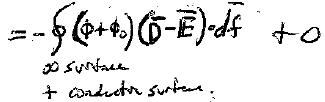 = -∮(φ+φ₀)(D̄-Ē)·df̄ + 0
∞ surface
+ conductor surface.